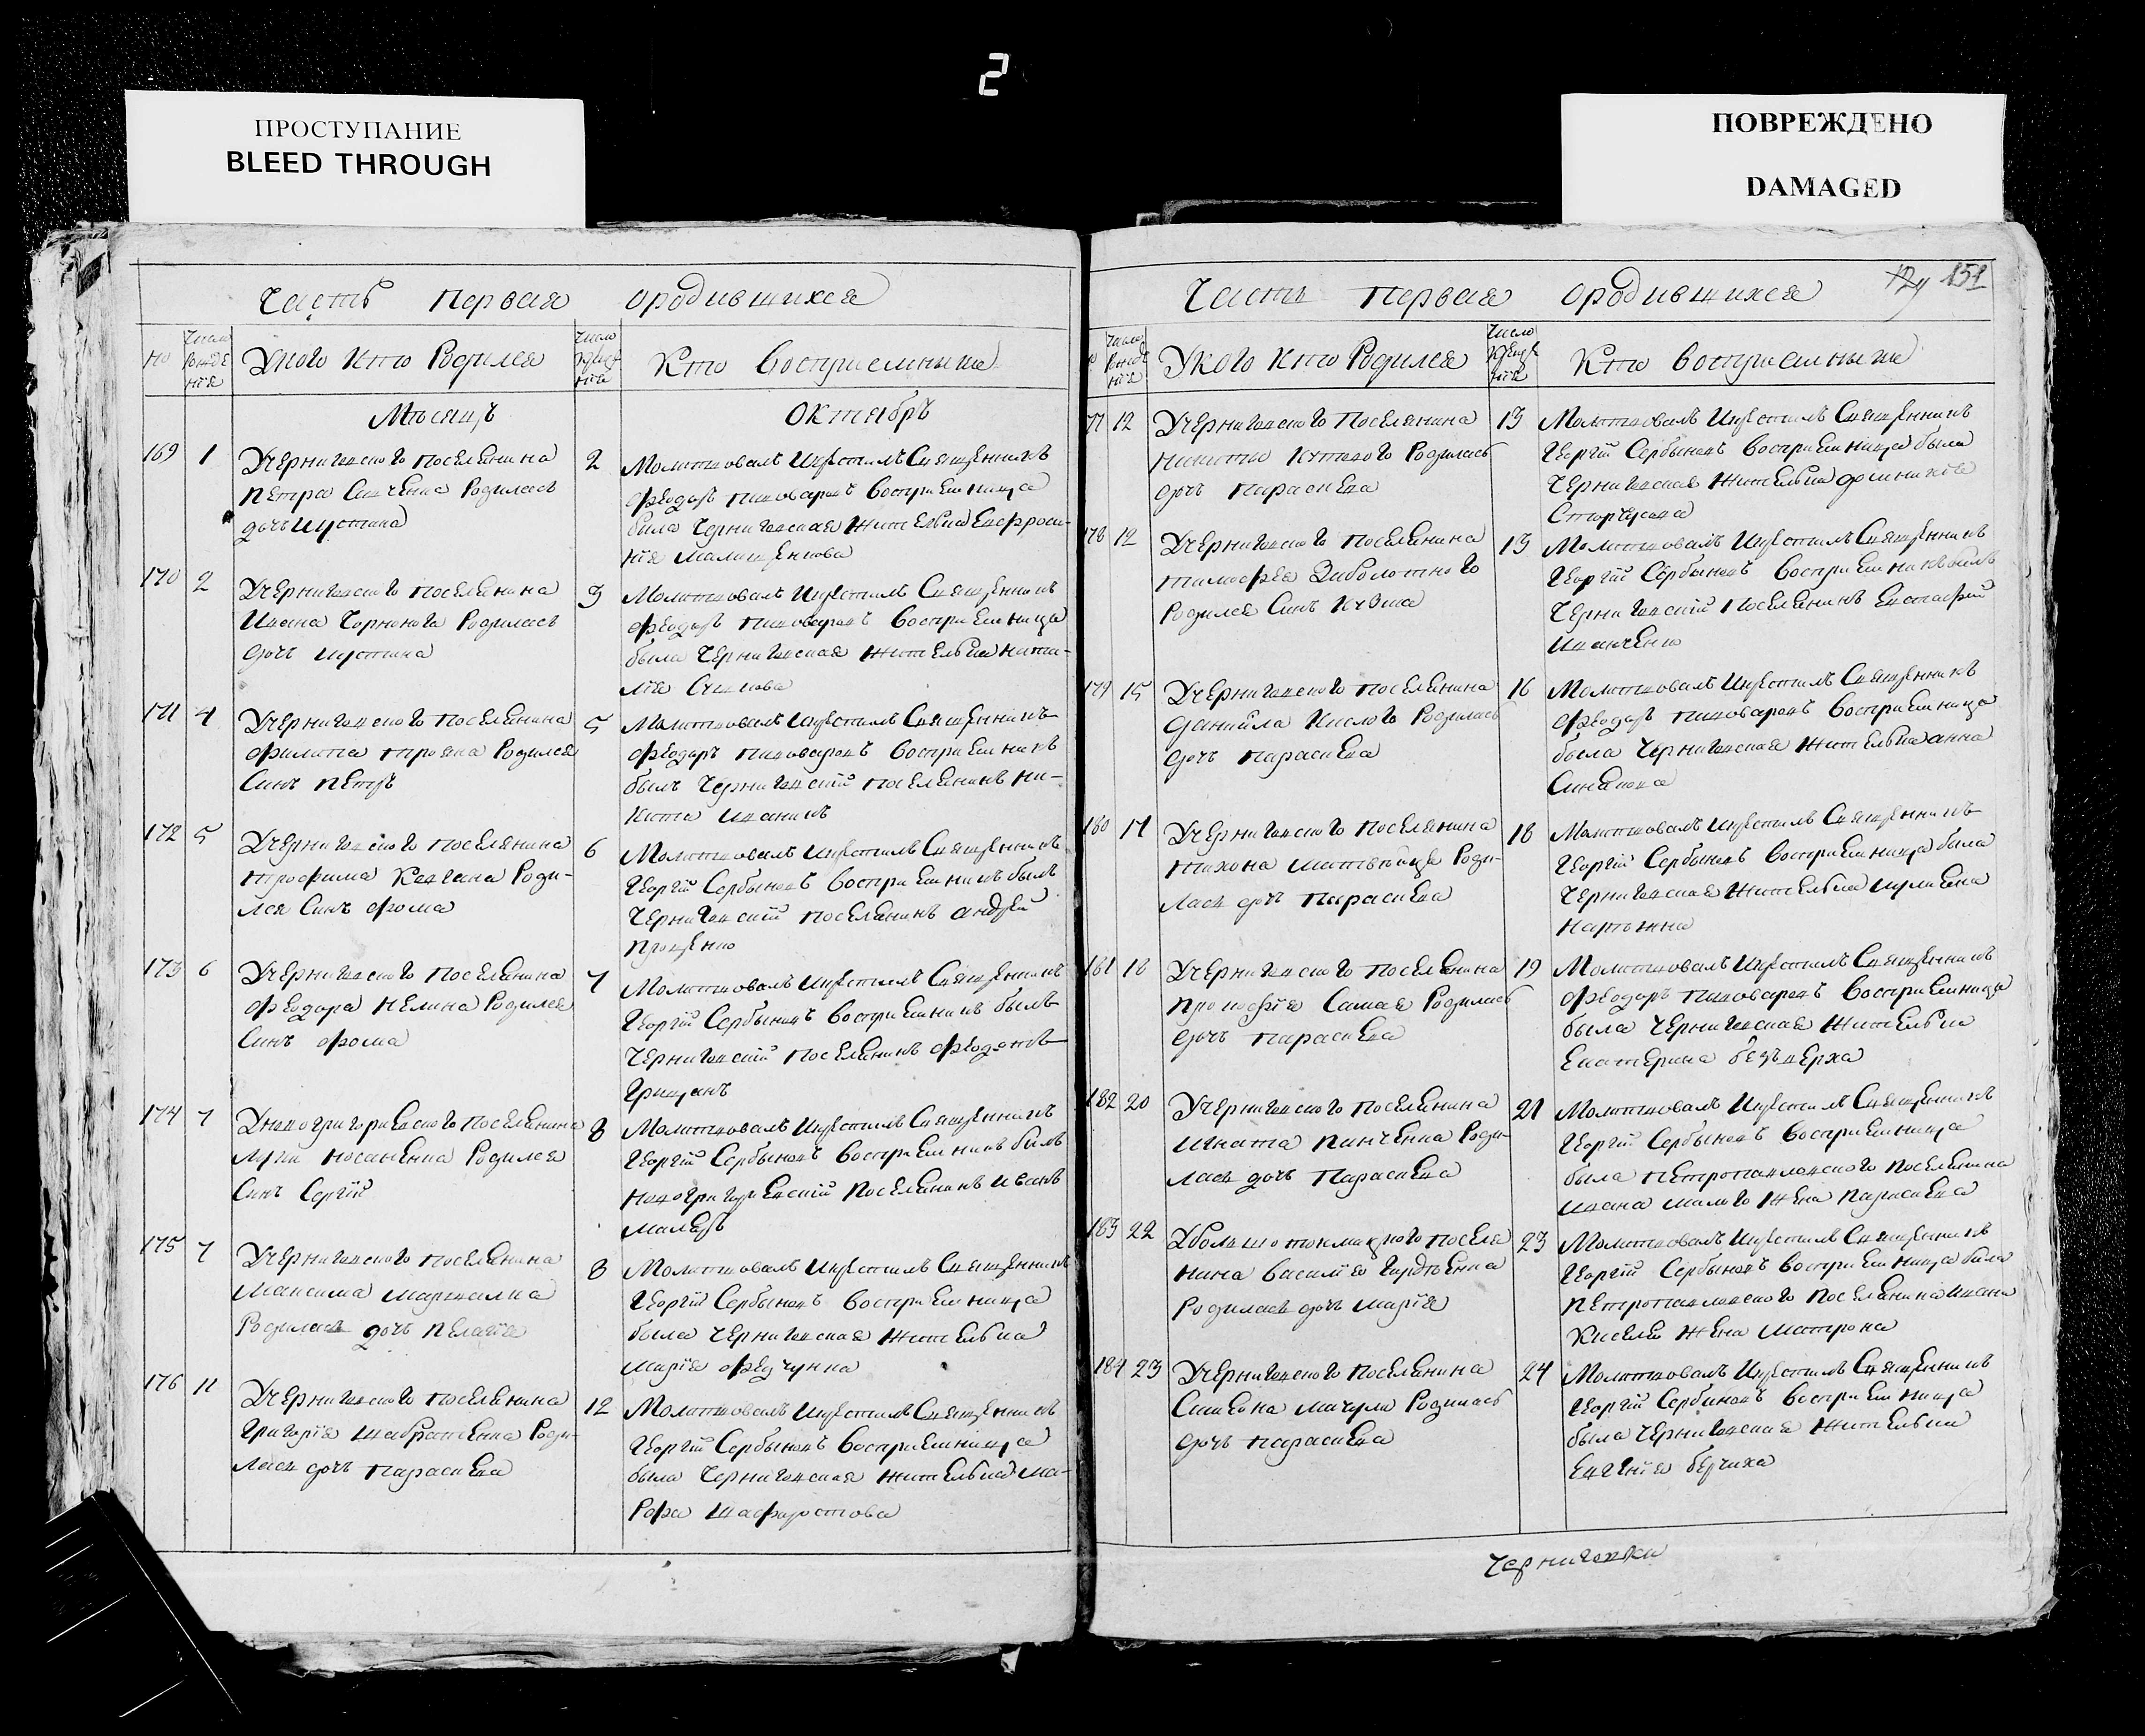 2
ПРОСТУПАНИЕ
BLEED THROUGH
ПОВРЕЖДЕНО
DAMAGED
Часть Первая ородившихся
но
Число рождения
Укого Кто Родился
Число
Кто восприемники
Месяцъ Октябръ
169 1
Учерниговского поселянина
Петра Савченка Родилась
дочь иустина
2
Молитвовалъ икрестилъ Священникъ
Феодоръ Пивоваровъ восприемница
била Черниговская жителька Евфроси-
нія
170 2
Учерниговского поселянина
Ивана Чорнонога Родилась
дочь иустина
3
Молитвовалъ икрестилъ Священникъ
Феодоръ Пивоваровъ восприемница
была Черниговская жителька ната-
лія
171 4
Учерниговского поселянина
Филипа трояна Родился
Синъ Петръ
5
Молитвовалъ икрестилъ Священникъ
Феодоръ Пивоваровъ восприемникъ
былъ Черниговскій поселянинъ ни-
кита иваникъ
172 5
Учерниговского поселянина
трофима Кевгана Роди-
лся Синъ Фома
6
Молитвовалъ икрестилъ Священникъ
Георгій Сербыновъ восприемникъ былъ
Черниговскій поселянинъ андрей
проценко
173 6
Учерниговского поселянина
Феодора Родился
Синъ Фома
7
Молитвовалъ икрестилъ Священникъ
Георгій Сербыновъ восприемникъ былъ
Черниговскій поселянинъ Феодотъ
Грицанъ
174 7
Уновогригориевского поселянина
луки носаненка Родился
Синъ Сергій
8
Молитвовалъ икрестилъ Священникъ
Георгій Сербыновъ восприемникъ билъ
новогригориевскій поселянинъ иванъ
маляръ
175 7
Учерниговского поселянина
Максима маршалка
Родилась дочь Пелагія
8
Молитвовалъ икрестилъ Священникъ
Георгій Сербыновъ восприемница
была Черниговская жителька
марія
176 11
Учерниговского поселянина
Григорія Роди-
лась дочь параскева
12
Молитвовалъ икрестилъ Священникъ
Георгій Сербыновъ восприемница
была Черниговская жителька ма-
Рфа шафоростова
Часть первая ородившихся
151
Число
Укого Кто Родился
Число
Кто восприемники
77 12
Учерниговского поселянина
никиты кутового Родилась
дочь параскева
13
Молитвовалъ икрестилъ Священникъ
Георгій Сербыновъ восприемница была
Черниговская жителька
178 12
Учерниговского поселянина
тимофея Заболотного
Родился Синъ кузма
13
Молитвовалъ икрестилъ Священникъ
Георгій Сербыновъ восприемникъ былъ
Черниговскій поселянинъ Евстафій
иванченко
179 15
Учерниговского поселянина
даниила кислого Родилась
дочь параскева
16
Молитвовалъ икрестилъ Священникъ
Феодоръ Пивоваровъ восприемница
была Черниговская жителька анна
Синякова
180 17
Учерниговского поселянина
тихона Роди-
лась дочь параскева
18
Молитвовалъ икрестилъ Священникъ
Георгій Сербыновъ восприемница была
Черниговская жителька
181 18
Учерниговского поселянина
прокофія Родилась
дочь параскева
19
Молитвовалъ икрестилъ Священникъ
Феодоръ Пивоваровъ восприемница
была Черниговская жителька
Екатерина безверха
182 20
Учерниговского поселянина
игната панченка Роди-
лась дочь Параскева
21
Молитвовалъ икрестилъ Священникъ
Георгій Сербыновъ восприемница
была петропавловского поселянина
ивана малого жена параскева
183 22
Уболшотокмацкого поселя
нина василія гордіенка
Родилась дочь марія
23
Молитвовалъ икрестилъ Священникъ
Георгій Сербыновъ восприемница была
петропавловского поселянина ивана
Киселя жена матрона
184 23
Учерниговского поселянина
Симеона мачули Родилась
дочь параскева
24
Молитвовалъ икрестилъ Священникъ
Георгій Сербиновъ восприемница
была Черниговская жителька
Евгенія берчиха
Черниговки